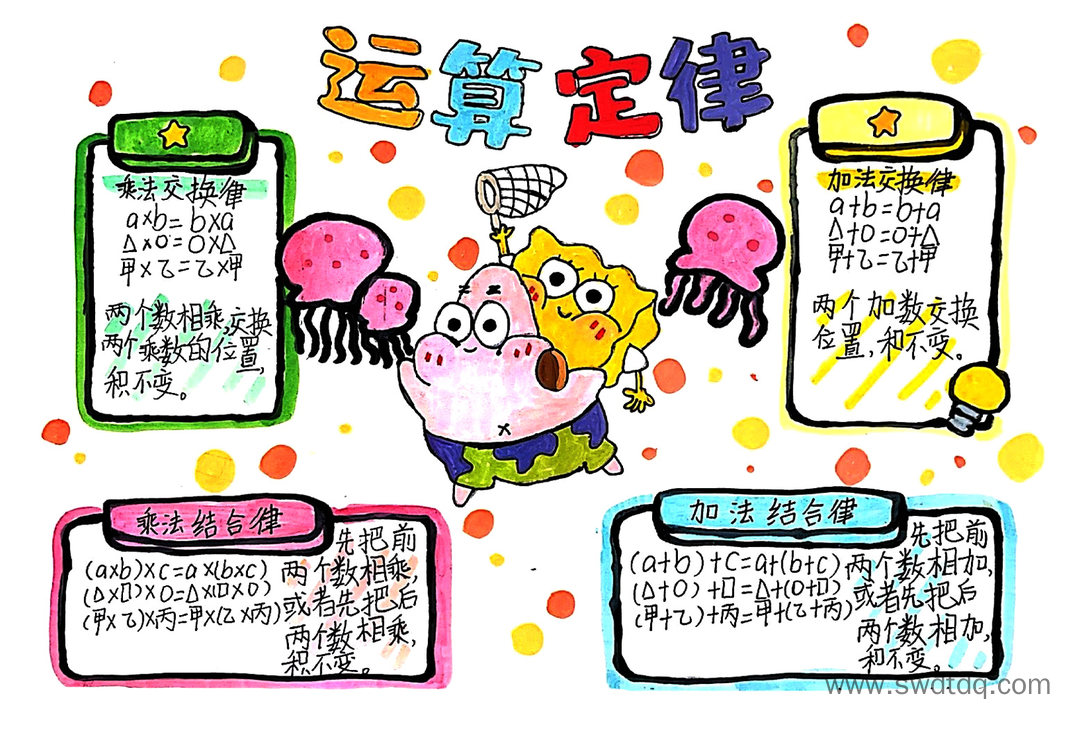 运算定律
乘法交换律
a×b=b×a
△×○=○×△
甲×乙=乙×甲
两个数相乘,交换
两个乘数的位置,
积不变。
加法交换律
a+b=b+a
△+○=○+△
甲+乙=乙+甲
两个加数交换
位置,和不变。
乘法结合律
(a×b)×c=a×(b×c)
(△×□)×○=△×(□×○)
(甲×乙)×丙=甲×(乙×丙)
先把前
两个数相乘,
或者先把后
两个数相乘,
积不变。
加法结合律
(a+b)+c=a+(b+c)
(△+○)+□=△+(○+□)
(甲+乙)+丙=甲+(乙+丙)
先把前
两个数相加,
或者先把后
两个数相加,
和不变。
www.swdtdq.com